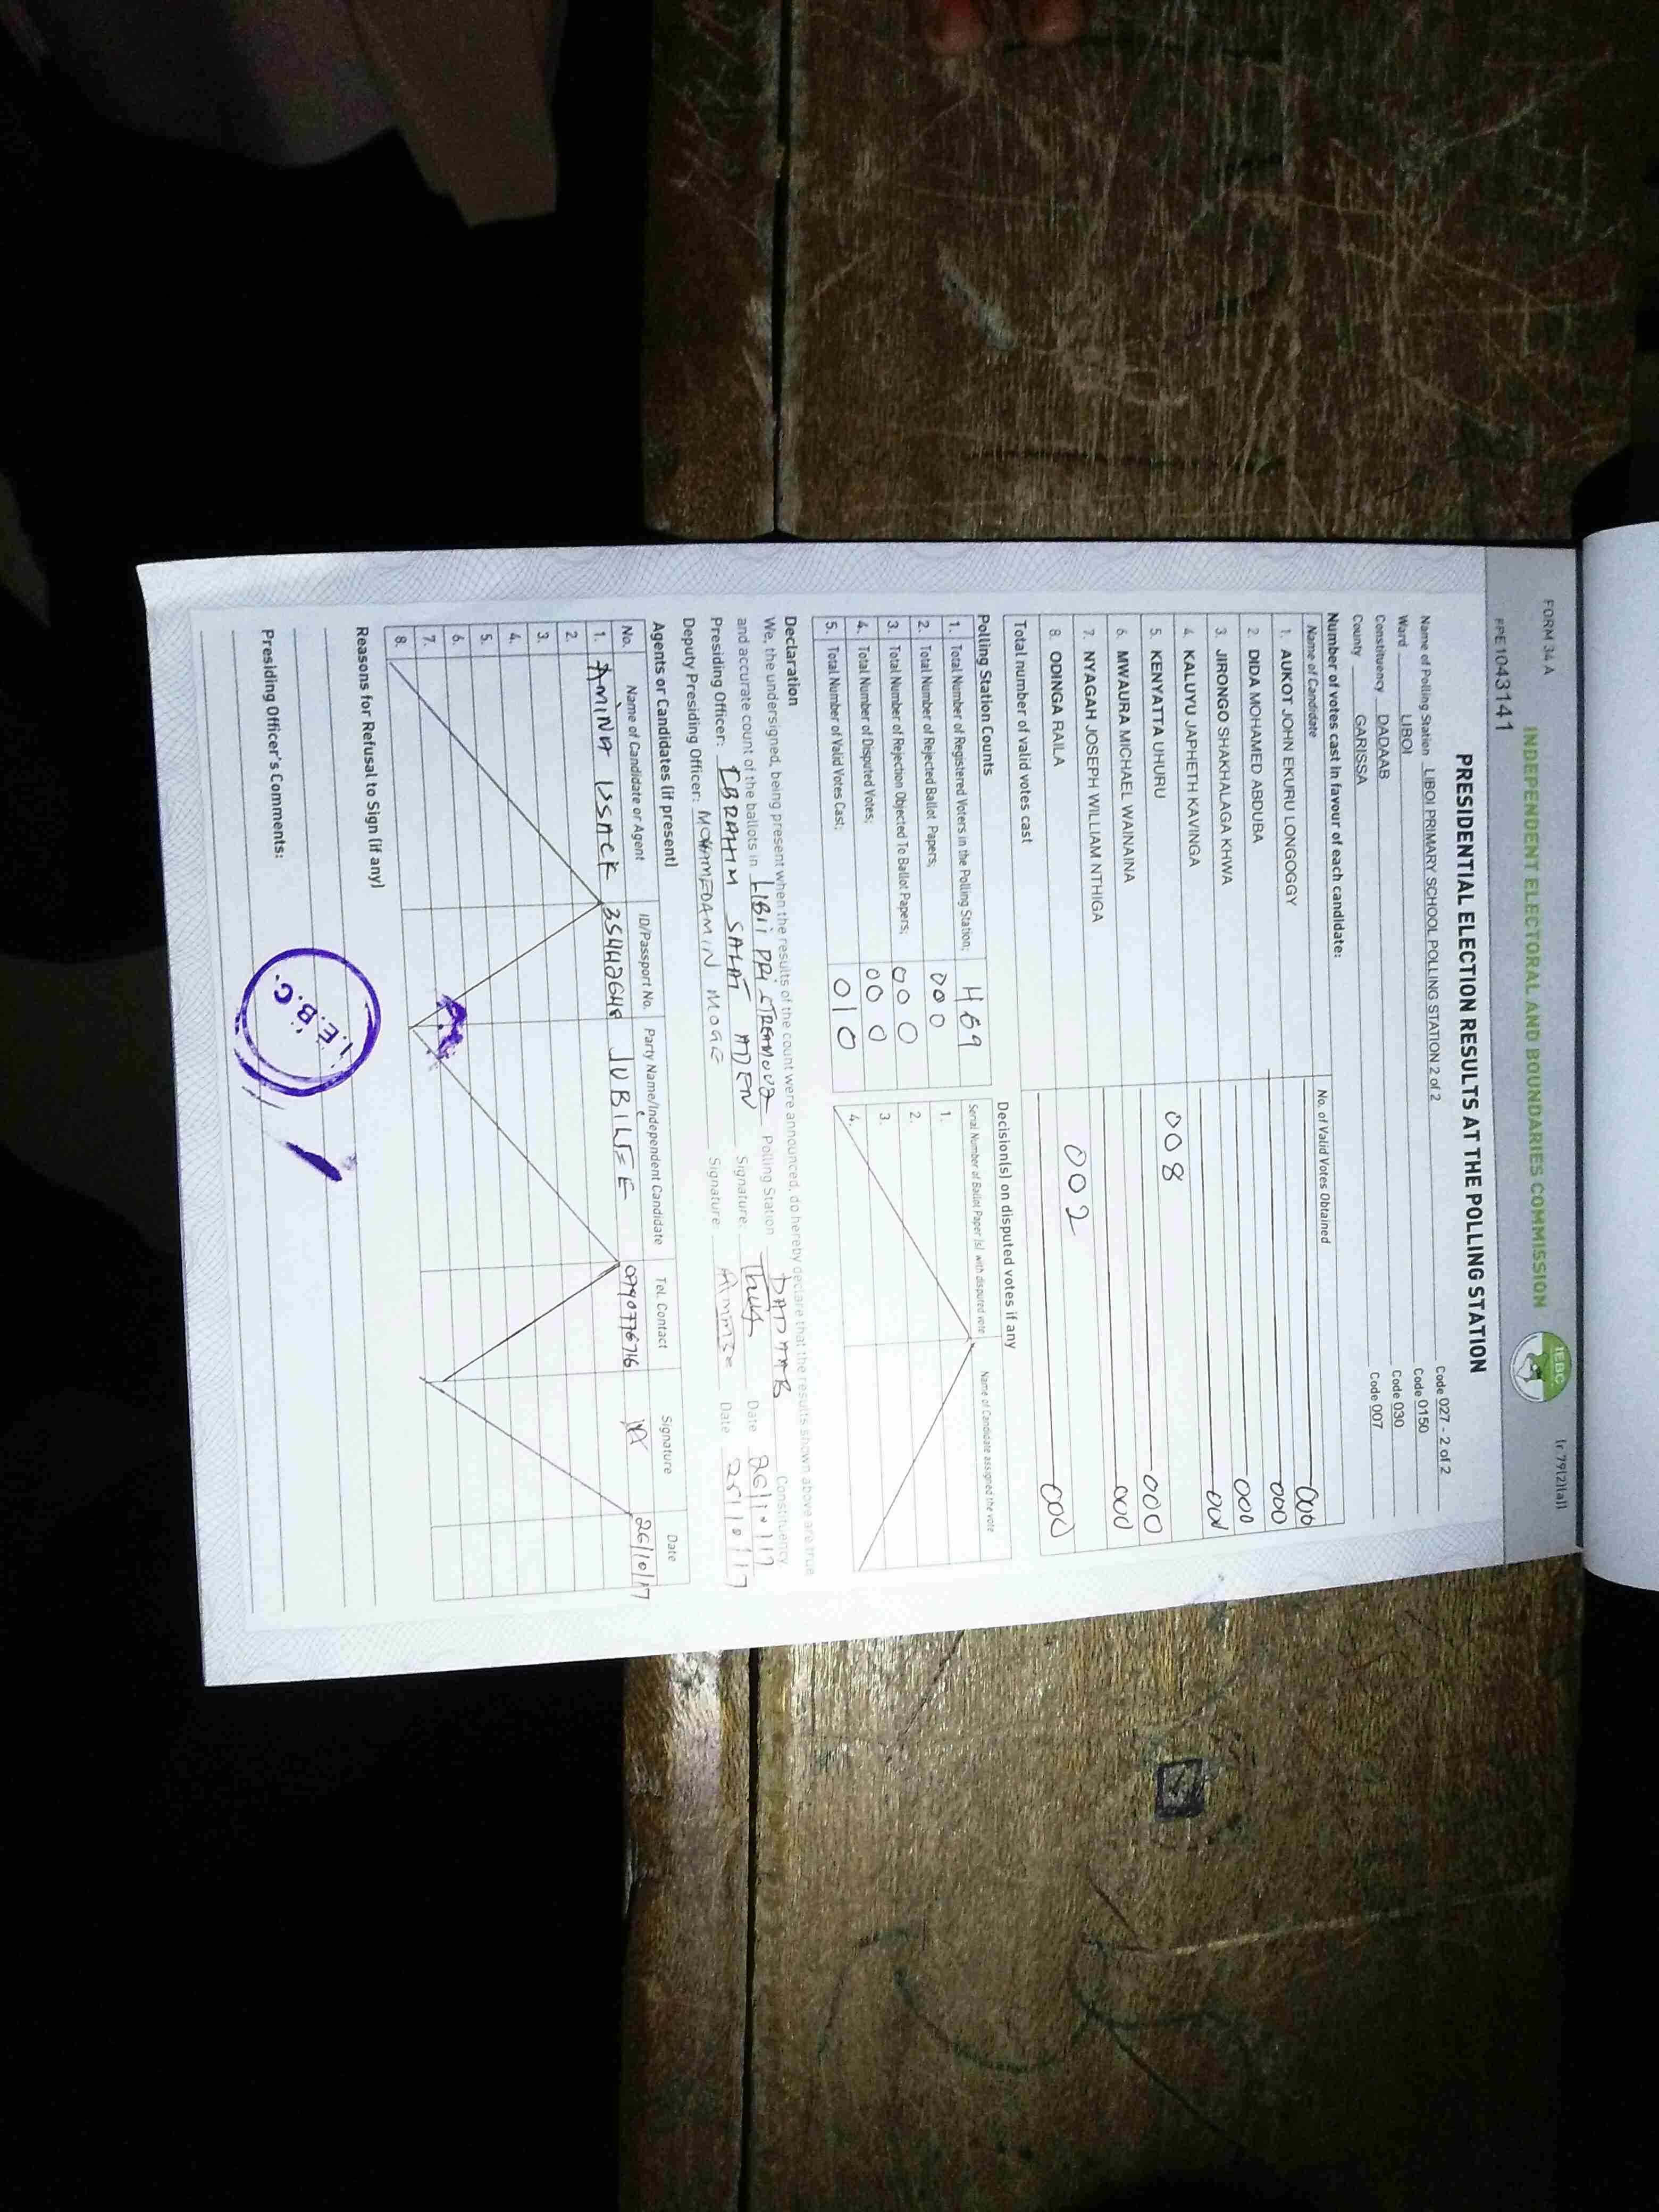 FORM 34 A
(r 79(2)(a))
INDEPENDENT ELECTORAL AND BOUNDARIES COMMISSION
IEBC
PRE1043141
PRESIDENTIAL ELECTION RESULTS AT THE POLLING STATION
Name of Polling Station LIBOI PRIMARY SCHOOL POLLING STATION 2 of 2 Code 027 - 2 of 2
Ward LIBOI Code 0150
Constituency DADAAB Code 030
County GARISSA Code 007
Number of votes cast in favour of each candidate:
Name of Candidate No. of Valid Votes Obtained
1. AUKOT JOHN EKURU LONGOGGY 000
2. DIDA MOHAMED ABDUBA 000
3. JIRONGO SHAKHALAGA KHWA 000
4. KALUYU JAPHETH KAVINGA 000
5. KENYATTA UHURU 008
6. MWAURA MICHAEL WAINAINA 000
7. NYAGAH JOSEPH WILLIAM NTHIGA 000
8. ODINGA RAILA 002
Total number of valid votes cast 000
Polling Station Counts
1. Total Number of Registered Voters in the Polling Station; 469
2. Total Number of Rejected Ballot Papers; 000
3. Total Number of Rejection Objected To Ballot Papers; 000
4. Total Number of Disputed Votes; 000
5. Total Number of Valid Votes Cast; 010
Decision(s) on disputed votes if any
Serial Number of Ballot Paper (s) with disputed vote Name of Candidate assigned the vote
1.
2.
3.
4.
Declaration
We, the undersigned, being present when the results of the count were announced, do hereby declare that the results shown above are true
and accurate count of the ballots in Polling Station DADAAB Constituency
Presiding Officer: IBRAHIM SALAT ADEN Signature Date 26/10/17
Deputy Presiding Officer: MOHAMEDAMIN MOGE Signature Date 25/10/17
Agents or Candidates (if present)
No. Name of Candidate or Agent ID/Passport No. Party Name/Independent Candidate Tel. Contact Signature Date
1. AMINA ISSACK 35442648 JUBILEE 0790776716 26/10/17
2.
3.
4.
5.
6.
7.
8.
Reasons for Refusal to Sign (if any)
Presiding Officer's Comments:
I.E.B.C.